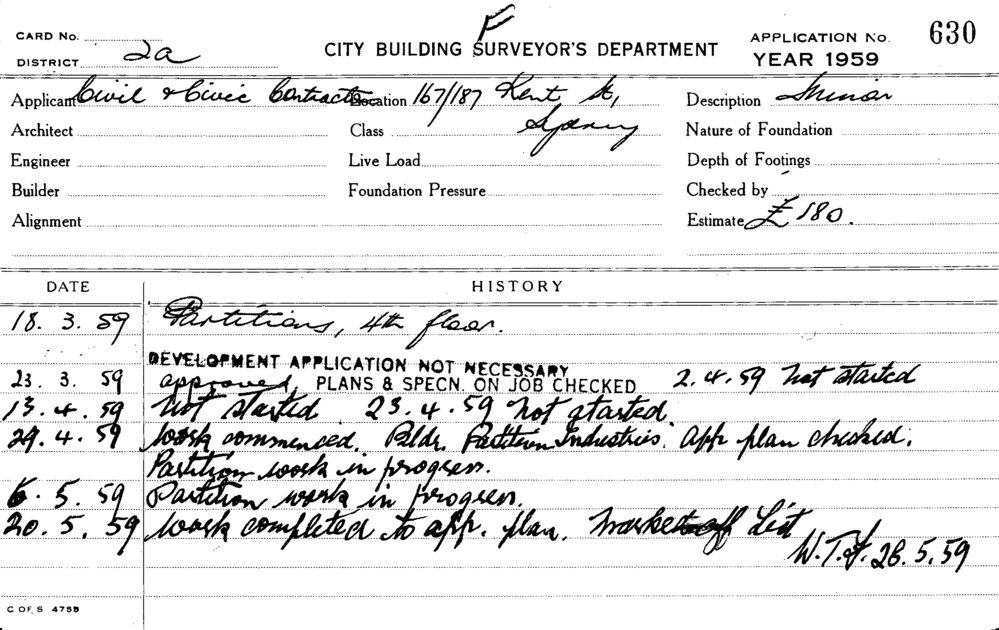 F
CARD No.
DISTRICT 2a
CITY BUILDING SURVEYOR'S DEPARTMENT
APPLICATION No. 630
YEAR 1959
Applicant Civil & Civic Contractors Location 167/187 Kent St, Description Minor
Architect Class Sydney Nature of Foundation
Engineer Live Load Depth of Footings
Builder Foundation Pressure Checked by
Alignment Estimate £180.
DATE HISTORY
18. 3. 59 Partitions, 4th floor.
DEVELOPMENT APPLICATION NOT NECESSARY
23. 3. 59 approved, PLANS & SPECN. ON JOB CHECKED 2.4.59 Not started
13. 4. 59 Not started 23.4.59 Not started.
29. 4. 59 Work commenced. Bldr. Partition Industries. App plan checked.
Partition work in progress.
6. 5. 59 Partition work in progress.
20. 5. 59 Work completed to app. plan. Marked off List
W.T.F. 28.5.59
C OF S 4759